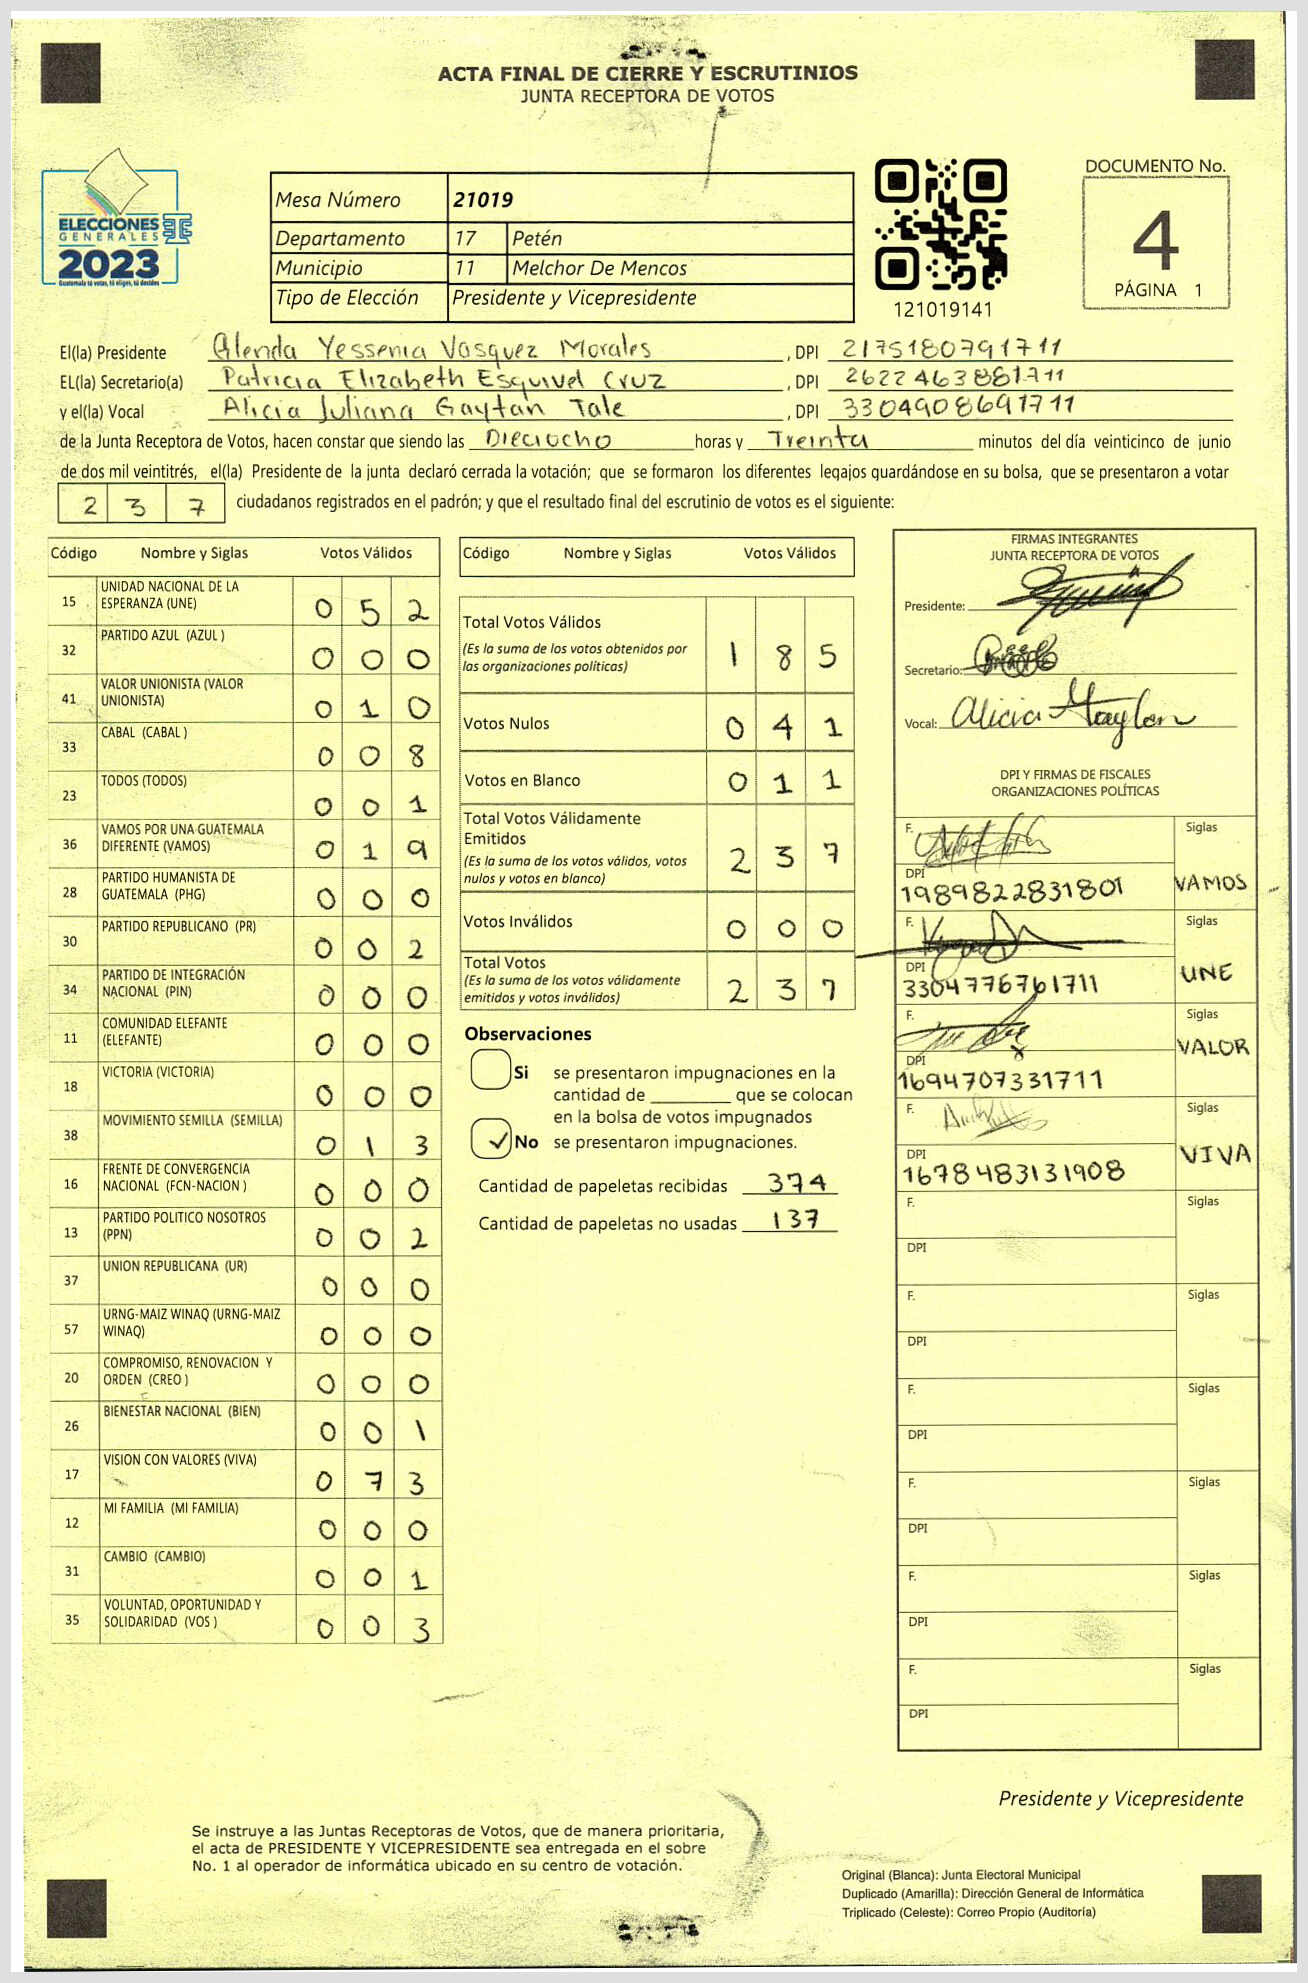 ACTA FINAL DE CIERRE Y ESCRUTINIOS
JUNTA RECEPTORA DE VOTOS
ELECCIONES
GENERALES
2023
Guatemala tú votas, tú eliges, tú decides
Mesa Número 21019
Departamento 17 Petén
Municipio 11 Melchor De Mencos
Tipo de Elección Presidente y Vicepresidente
121019141
DOCUMENTO No.
4
PÁGINA 1
El(la) Presidente Glenda Yessenia Vasquez Morales, DPI 2175180791711
EL(la) Secretario(a) Patricia Elizabeth Esquivel Cruz, DPI 2622463881711
y el(la) Vocal Alicia Juliana Gaytan Tale, DPI 3304908691711
de la Junta Receptora de Votos, hacen constar que siendo las Dieciocho horas y Treinta minutos del día veinticinco de junio
de dos mil veintitrés, el(la) Presidente de la junta declaró cerrada la votación; que se formaron los diferentes legajos guardándose en su bolsa, que se presentaron a votar
2 3 7 ciudadanos registrados en el padrón; y que el resultado final del escrutinio de votos es el siguiente:
Código Nombre y Siglas Votos Válidos
15 UNIDAD NACIONAL DE LA ESPERANZA (UNE) 0 5 2
32 PARTIDO AZUL (AZUL ) 0 0 0
41 VALOR UNIONISTA (VALOR UNIONISTA) 0 1 0
33 CABAL (CABAL ) 0 0 8
23 TODOS (TODOS) 0 0 1
36 VAMOS POR UNA GUATEMALA DIFERENTE (VAMOS) 0 1 9
28 PARTIDO HUMANISTA DE GUATEMALA (PHG) 0 0 0
30 PARTIDO REPUBLICANO (PR) 0 0 2
34 PARTIDO DE INTEGRACIÓN NACIONAL (PIN) 0 0 0
11 COMUNIDAD ELEFANTE (ELEFANTE) 0 0 0
18 VICTORIA (VICTORIA) 0 0 0
38 MOVIMIENTO SEMILLA (SEMILLA) 0 1 3
16 FRENTE DE CONVERGENCIA NACIONAL (FCN-NACION ) 0 0 0
13 PARTIDO POLITICO NOSOTROS (PPN) 0 0 2
37 UNION REPUBLICANA (UR) 0 0 0
57 URNG-MAIZ WINAQ (URNG-MAIZ WINAQ) 0 0 0
20 COMPROMISO, RENOVACION Y ORDEN (CREO ) 0 0 0
26 BIENESTAR NACIONAL (BIEN) 0 0 1
17 VISION CON VALORES (VIVA) 0 7 3
12 MI FAMILIA (MI FAMILIA) 0 0 0
31 CAMBIO (CAMBIO) 0 0 1
35 VOLUNTAD, OPORTUNIDAD Y SOLIDARIDAD (VOS ) 0 0 3
Código Nombre y Siglas Votos Válidos
Total Votos Válidos 1 8 5
(Es la suma de los votos obtenidos por
las organizaciones políticas)
Votos Nulos 0 4 1
Votos en Blanco 0 1 1
Total Votos Válidamente
Emitidos 2 3 7
(Es la suma de los votos válidos, votos
nulos y votos en blanco)
Votos Inválidos 0 0 0
Total Votos 2 3 7
(Es la suma de los votos válidamente
emitidos y votos inválidos)
Observaciones
Si se presentaron impugnaciones en la
cantidad de ________ que se colocan
en la bolsa de votos impugnados
No se presentaron impugnaciones.
Cantidad de papeletas recibidas 374
Cantidad de papeletas no usadas 137
FIRMAS INTEGRANTES
JUNTA RECEPTORA DE VOTOS
Presidente:
Secretario:
Vocal: Alicia Gaytan
DPI Y FIRMAS DE FISCALES
ORGANIZACIONES POLÍTICAS
F. Siglas
DPI 1989822831801 VAMOS
F. Siglas
DPI 3304776761711 UNE
F. Siglas
DPI 1694707331711 VALOR
F. Siglas
DPI 1678483131908 VIVA
F. Siglas
DPI
F. Siglas
DPI
F. Siglas
DPI
F. Siglas
DPI
F. Siglas
DPI
F. Siglas
DPI
Presidente y Vicepresidente
Se instruye a las Juntas Receptoras de Votos, que de manera prioritaria,
el acta de PRESIDENTE Y VICEPRESIDENTE sea entregada en el sobre
No. 1 al operador de informática ubicado en su centro de votación.
Original (Blanca): Junta Electoral Municipal
Duplicado (Amarilla): Dirección General de Informática
Triplicado (Celeste): Correo Propio (Auditoría)